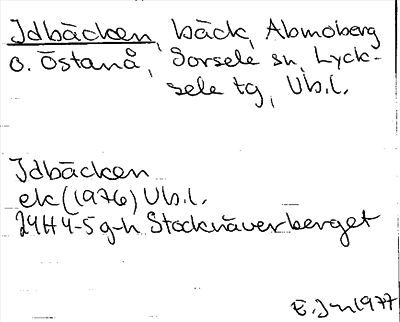 Idbäcken, bäck, Abmoberg
o. Östanå, Sorsele sn, Lyck-
sele tg, Vb.l.
Idbäcken
ek (1976) Vb.l.
24H 4-5 g-h Stocknäverberget
1977